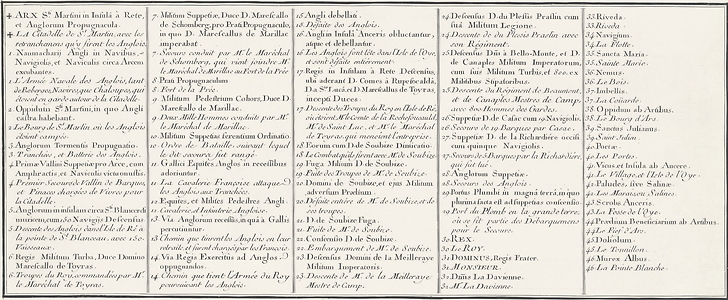 ✝ ARX Sti Martini in Insulâ à Rete,
et Anglorum Propugnacula.
✝ LA Citadelle de St Martin, avec les
retranchemens qu'y firent les Anglois.
1. Naumachia Angli in Navibus,
Navigiolis, et Naviculis circa Arcem
excubantes.
1. L'Armée Navale des Anglois, tant
de Roberges, Navires, que Chaloupes, qui
étoient en garde autour de la Citadelle.
2. Oppidulū Sti Martini, in quo Angli
castra habebant.
2. Le Bourg de St Martin où les Anglois
étoient campés.
3. Anglorum Tormentis Propugnatio.
3. Tranchées, et Batterie des Anglois.
4. Primæ Vallini Suppetiæ pro Arce, cum
Amphractis, et Naviculis victu onustis.
4. Premier Secours de Vallin de Barques,
et Pinasses chargées de Vivres pour
la Citadelle.
5. Anglorum in insulam circa St Blanceau
6. Regis Militum Turba, Duce Domino
Marescallo de Toyras.
6. Troupes du Roy, commandées par Mr
le Maréchal de Toyras.
7. Militum Suppetiæ, Duce D. Marescallo
de Schomberg, pro Prati Propugnaculo,
in quo D. Marescallus de Marillac
imperabat.
7. Secours conduit par Mr le Maréchal
de Schomberg, qui vint joindre Mr
le Maréchal de Marillac au Fort de la Prée
8. Prati Propugnaculum
8. Fort de la Prée.
9. Militum Pedestrium Cohors, Duce D.
Marescallo de Marillac.
9. Deux Mille Hommes conduits par Mr
le Maréchal de Marillac.
10. Militum Suppetiæ ferentium Ordinatio.
10. Ordre de Bataille suivant lequel
le dit secours fut rangé.
11. Gallici Equites Anglos in recessibus
adoriuntur.
11. La Cavalerie Françoise attaque
les Anglois aux Tranchées.
12. Equites, et Milites Pedestres Angli.
12. Cavalerie et Infanterie Angloise.
13. Via Anglorum recessus, in quâ à Gallis
percutiuntur.
13. Chemin que tinrent les Anglois en leur
retraite, et furent chargés par les François.
14. Via Regis Exercitûs ad Anglos
oppugnandos.
14. Chemin que tient l'Armée du Roy
poursuivant les Anglois.
15. Angli debellati.
15. Défaite des Anglois.
16. Anglis in Insulâ Anceris obluctantur,
atque et debellantur.
16. Les Anglois font tête dans l'Isle de l'Oye,
et sont défaits entièrement.
17. Regis in Insulam à Rete Descensus,
ubi aderant D. Comes à Rupefucaldâ,
D. à St Lucâ et D. Marescallus de Toyras,
nuncupati Duces.
17. Descente des Troupes du Roy en l'Isle de Ré,
où étoient Mr le Comte de la Rochefoucauld,
Mr de Saint Luc, et Mr le Maréchal
de Toyras, qui menoient l'entreprise.
18. Eorum cum D. de Soubize Dimicatio.
18. Le Combat qu'ils firent avec Mr de Soubize
19. Fuga Militum D. de Soubize.
19. Fuite des Troupes de Mr de Soubize.
20. Domini de Soubize, et ejus Militum
adversùm Prælium.
20. Défaite entière de Mr de Soubize, et de
ses troupes.
21. D. de Soubize Fuga.
21. Fuite de Mr de Soubize.
22. Consensio D. de Soubize.
22. Embarquement de Mr de Soubize.
23. Descensus Domini de la Meilleraye
Militum Imperatoris.
23. Descente de Mr de la Meilleraye
Mestre de Camp.
24. Descensus D. du Plessis Praslin cum
suâ Militum Legione.
24. Descente de du Plessis Praslin avec
son Régiment.
25. Descensus D. à Bello-Monte, et D.
de Canaples Militum Imperatorum,
cum suis Militum Turbis, et 800. ex
Militibus Stipatoribus.
25. Descente du Régiment de Beaumont,
et de Canaples Mestres de Camp,
avec 800. Hommes des Gardes.
26. Suppetiæ D. de Casac cum 19 Navigiolis.
26. Secours de 19 Barques par Casac.
27. Suppetiæ D. de la Richardière
cum quinque Navigiolis.
27. Secours de Barques par la Richardière,
qui fut tué.
28. Anglorum Suppetiæ.
28. Secours des Anglois.
29. Portus Plumbi in magnâ terrâ, in quo
plurima facta est ad suppetias consensio.
29. Port du Plomb en la grande terre,
où se fit partie des Débarquemens
pour le Secours.
30. REX.
30. Le ROY.
31. DOMINUS, Regis Frater.
31. MONSIEUR.
32. Divus La Davienne.
32. Mr La Davienne.
33. Riveda.
33. Riveda.
34. Navigium.
34. La Flotte.
35. Sancta Maria.
35. Sainte Marie.
36. Nemus.
36. Le Bois.
37. Imbellis.
37. La Couarde.
38. Oppidum ab Artibus.
38. Le Bourg d'Ars.
39. Sanctus Julianus.
39. Saint Julian.
40. Portæ.
40. Les Portes.
41. Vicus, et Insula ab Ancere.
41. Le Village, et l'Isle de l'Oye.
42. Paludes, sive Salinæ.
42. Les Marais, ou Salines.
43. Scroba Anceris.
43. La Fosse de l'Oye.
44. Prædium Beneficiarium ab Artibus.
44. Le Fief d'Ars.
45. Doliolum.
45. Le Tonnillon.
46. Murex Albus.
46. La Pointe Blanche.